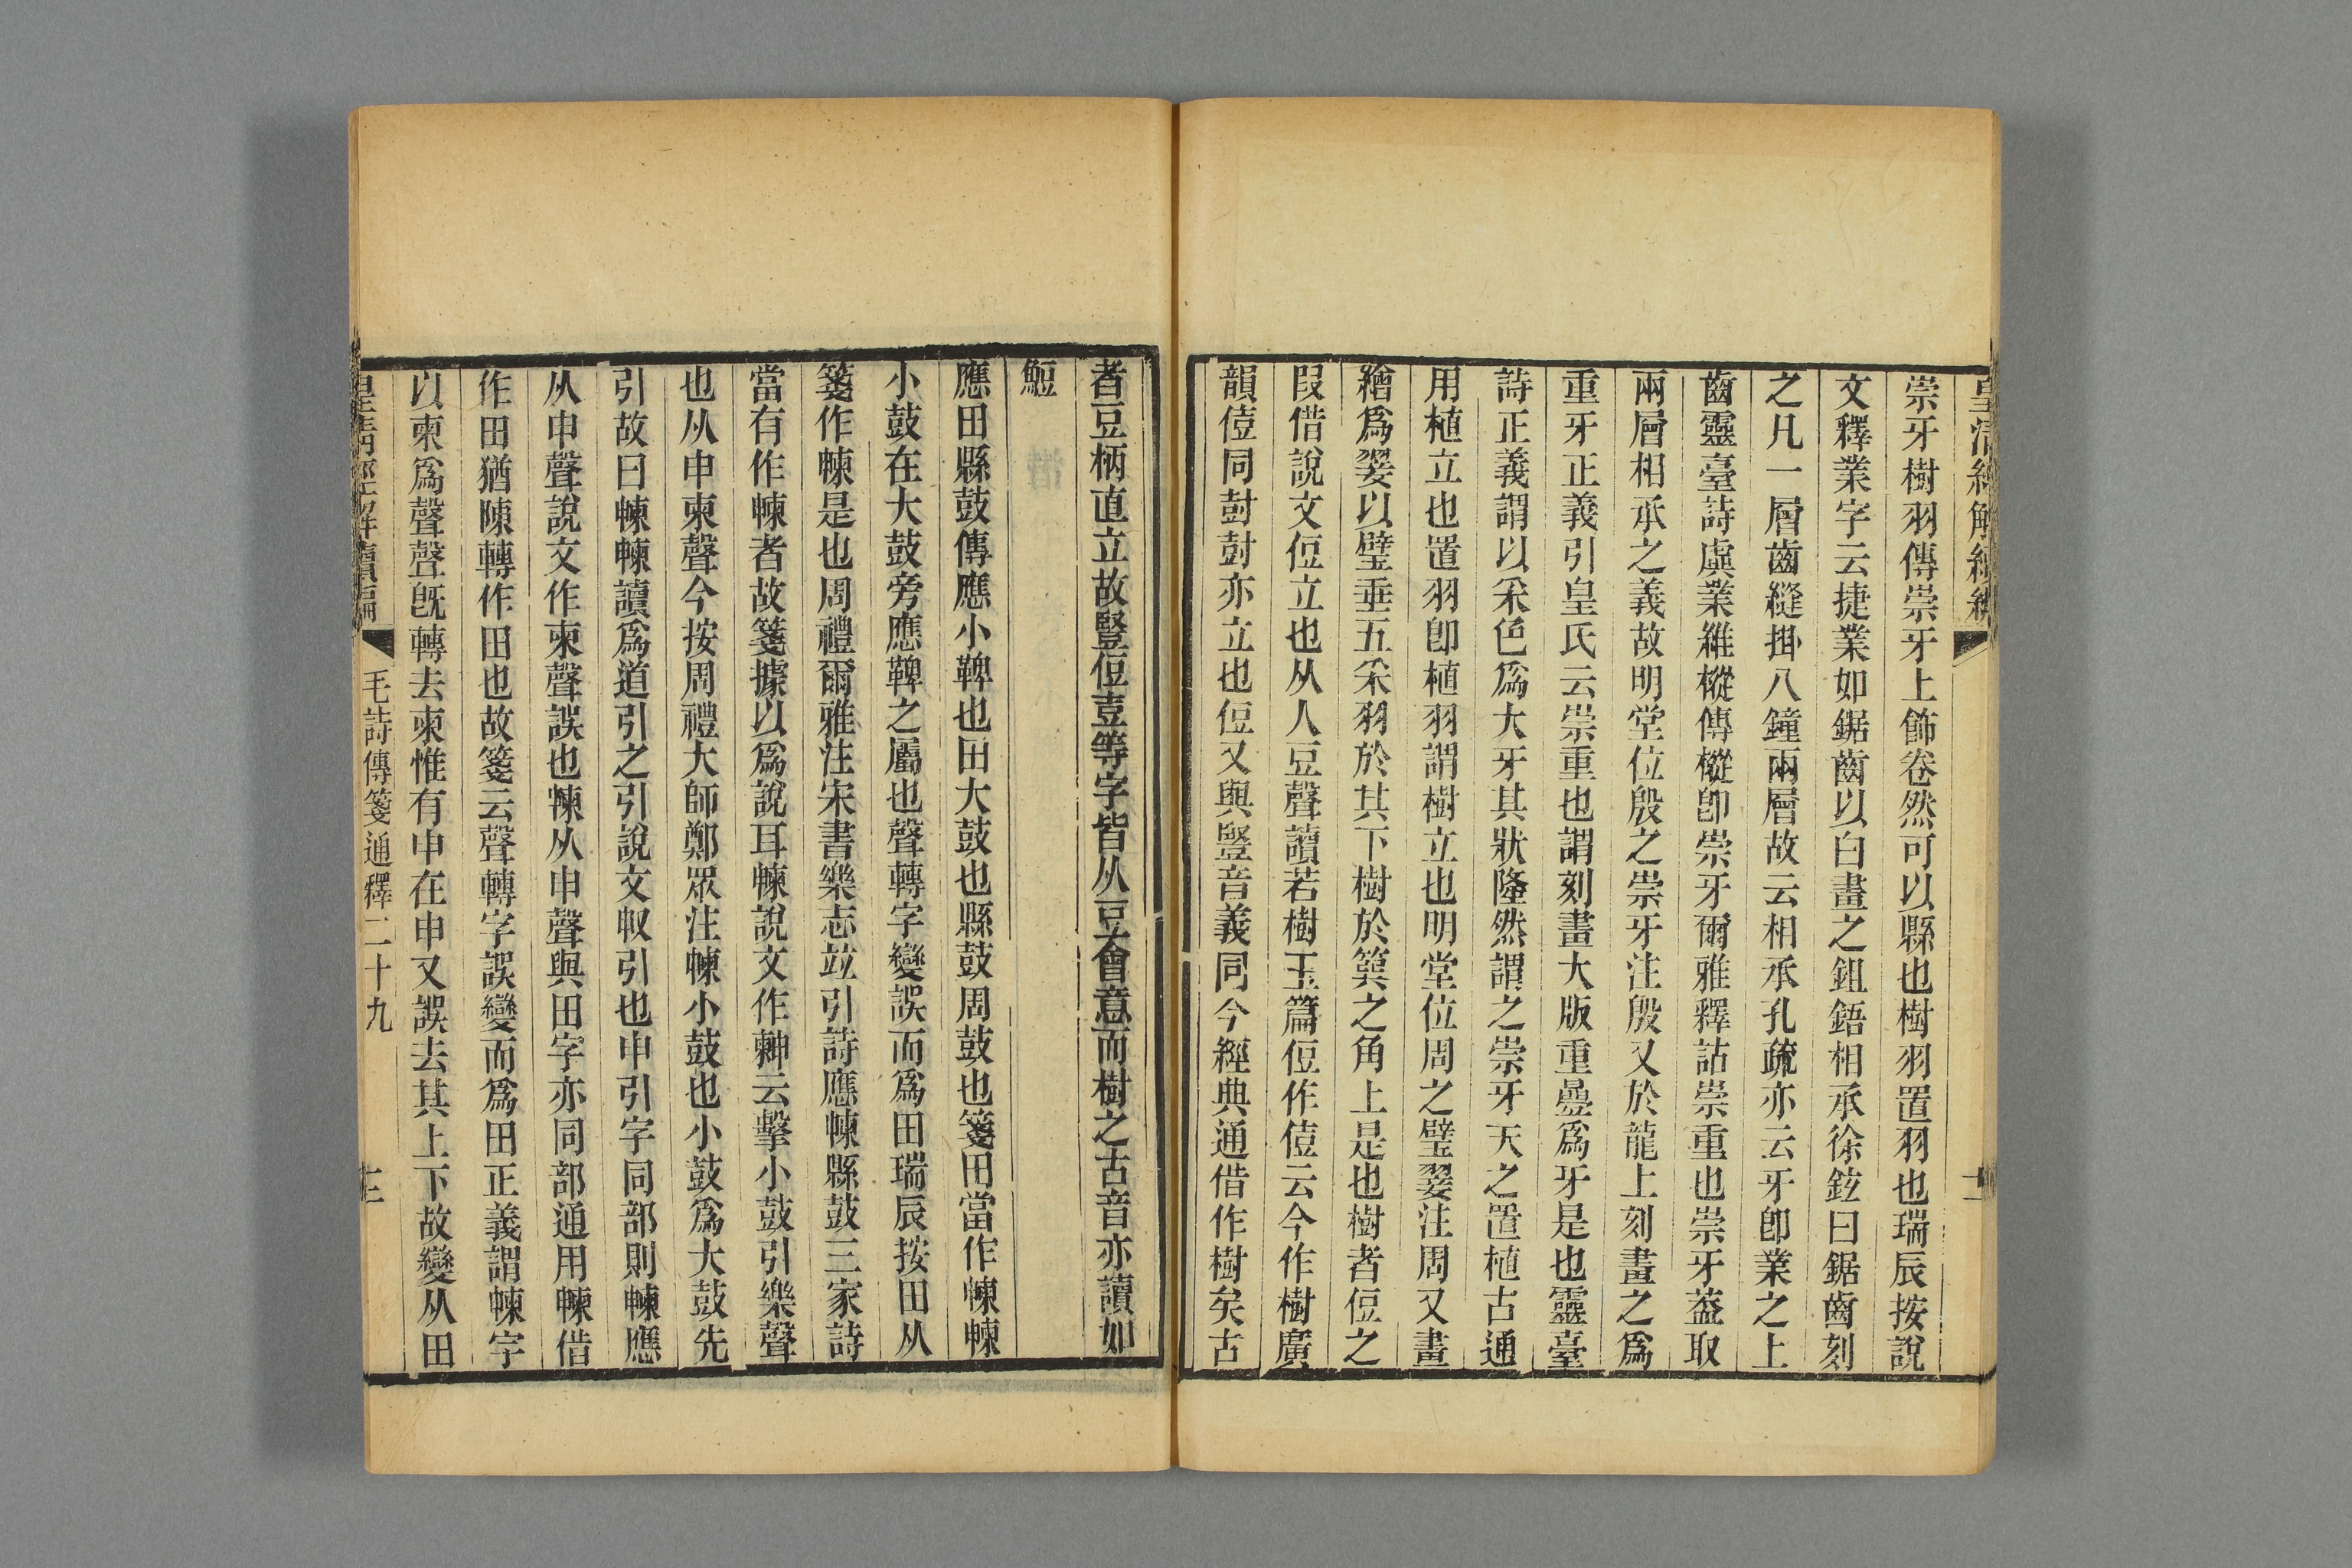 崇牙樹羽傳崇牙上飾卷然可以縣也樹羽置羽也瑞辰按說
文釋業字云捷業如鋸齒以白畫之鉏鋙相承徐鉉曰鋸齒刻
之凡一層齒縫挂八鐘兩層故云相承孔疏亦云牙卽業之上
齒靈臺詩虡業維樅傳樅卽崇牙爾雅釋詁崇重也崇牙葢取
兩層相承之義故明堂位殷之崇牙注殷又於龍上刻畫之爲
重牙正義引皇氏云崇重也謂刻畫大版重疊爲牙是也靈臺
詩正義謂以采色爲大牙其狀隆然謂之崇牙天之置植古通
用植立也置羽卽植羽謂樹立也明堂位周之璧翣注周又畫
繒爲翣以璧垂五采羽於其下樹於簨之角上是也樹者侸之
叚借說文侸立也从人豆聲讀若樹玉篇侸作偣云今作樹廣
韻偣同尌尌亦立也侸又與豎音義同今經典通借作樹矣古
者豆柄直立故豎侸壴等字皆从豆會意而樹之古音亦讀如
鯉
應田縣鼓傳應小鞞也田大鼓也縣鼓周鼓也箋田當作朄朄
小鼓在大鼓旁應鞞之屬也聲轉字變誤而爲田瑞辰按田从
箋作朄是也周禮爾雅注宋書樂志竝引詩應朄縣鼓三家詩
當有作朄者故箋據以爲說耳朄說文作𣌾云擊小鼓引樂聲
也从申柬聲今按周禮大師鄭眾注朄小鼓也小鼓爲大鼓先
引故曰朄朄讀爲道引之引說文㕞引也申引字同部則朄應
从申聲說文作柬聲誤也朄从申聲與田字亦同部通用朄借
作田猶陳轉作田也故箋云聲轉字誤變而爲田正義謂朄字
以柬爲聲聲旣轉去柬惟有申在申又誤去其上下故變从田
毛詩傳箋通釋二十九